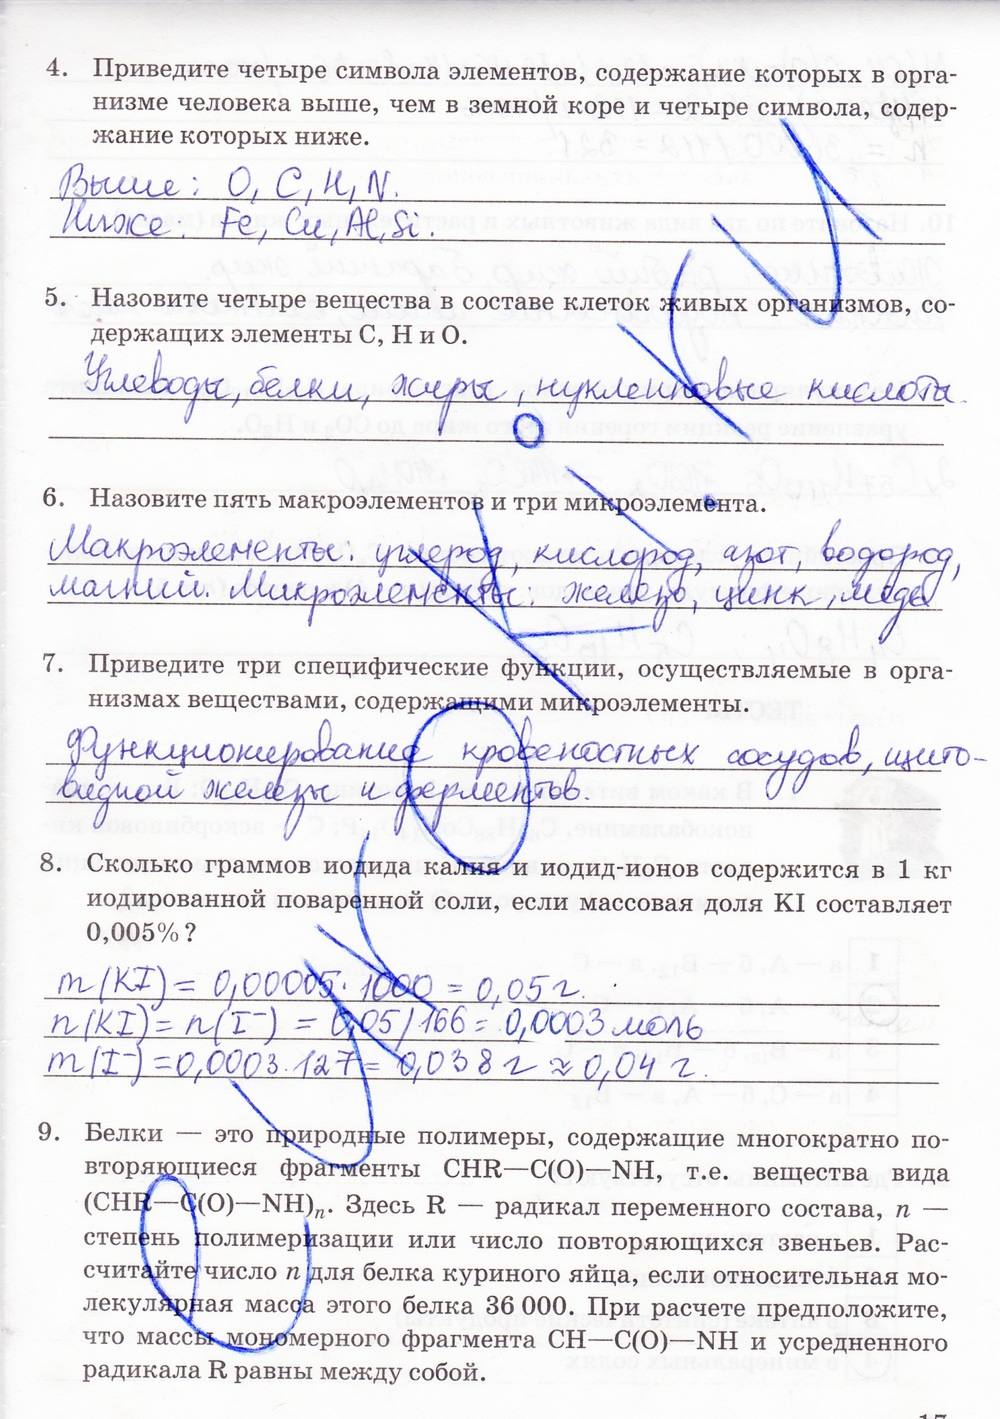 4. Приведите четыре символа элементов, содержание которых в орга-
низме человека выше, чем в земной коре и четыре символа, содер-
жание которых ниже.
Выше: O, C, H, N.
Ниже: Fe, Cu, Al, Si.
5. Назовите четыре вещества в составе клеток живых организмов, со-
держащих элементы С, Н и О.
Углеводы, белки, жиры, нуклеиновые кислоты.
6. Назовите пять макроэлементов и три микроэлемента.
Макроэлементы: углерод, кислород, азот, водород,
магний. Микроэлементы: железо, цинк, медь
7. Приведите три специфические функции, осуществляемые в орга-
низмах веществами, содержащими микроэлементы.
Функционирование кровеностных сосудов, щито-
видной железы и ферментов.
8. Сколько граммов иодида калия и иодид-ионов содержится в 1 кг
иодированной поваренной соли, если массовая доля KI составляет
0,005%?
m(KI) = 0,00005·1000 = 0,05 г.
n(KI) = n(I⁻) = 0,05/166 = 0,0003 моль
m(I⁻) = 0,0003·127 = 0,038 г ≈ 0,04 г.
9. Белки — это природные полимеры, содержащие многократно по-
вторяющиеся фрагменты CHR—C(O)—NH, т.е. вещества вида
(CHR—C(O)—NH)n. Здесь R — радикал переменного состава, n —
степень полимеризации или число повторяющихся звеньев. Рас-
считайте число n для белка куриного яйца, если относительная мо-
лекулярная масса этого белка 36 000. При расчете предположите,
что массы мономерного фрагмента CH—C(O)—NH и усредненного
радикала R равны между собой.